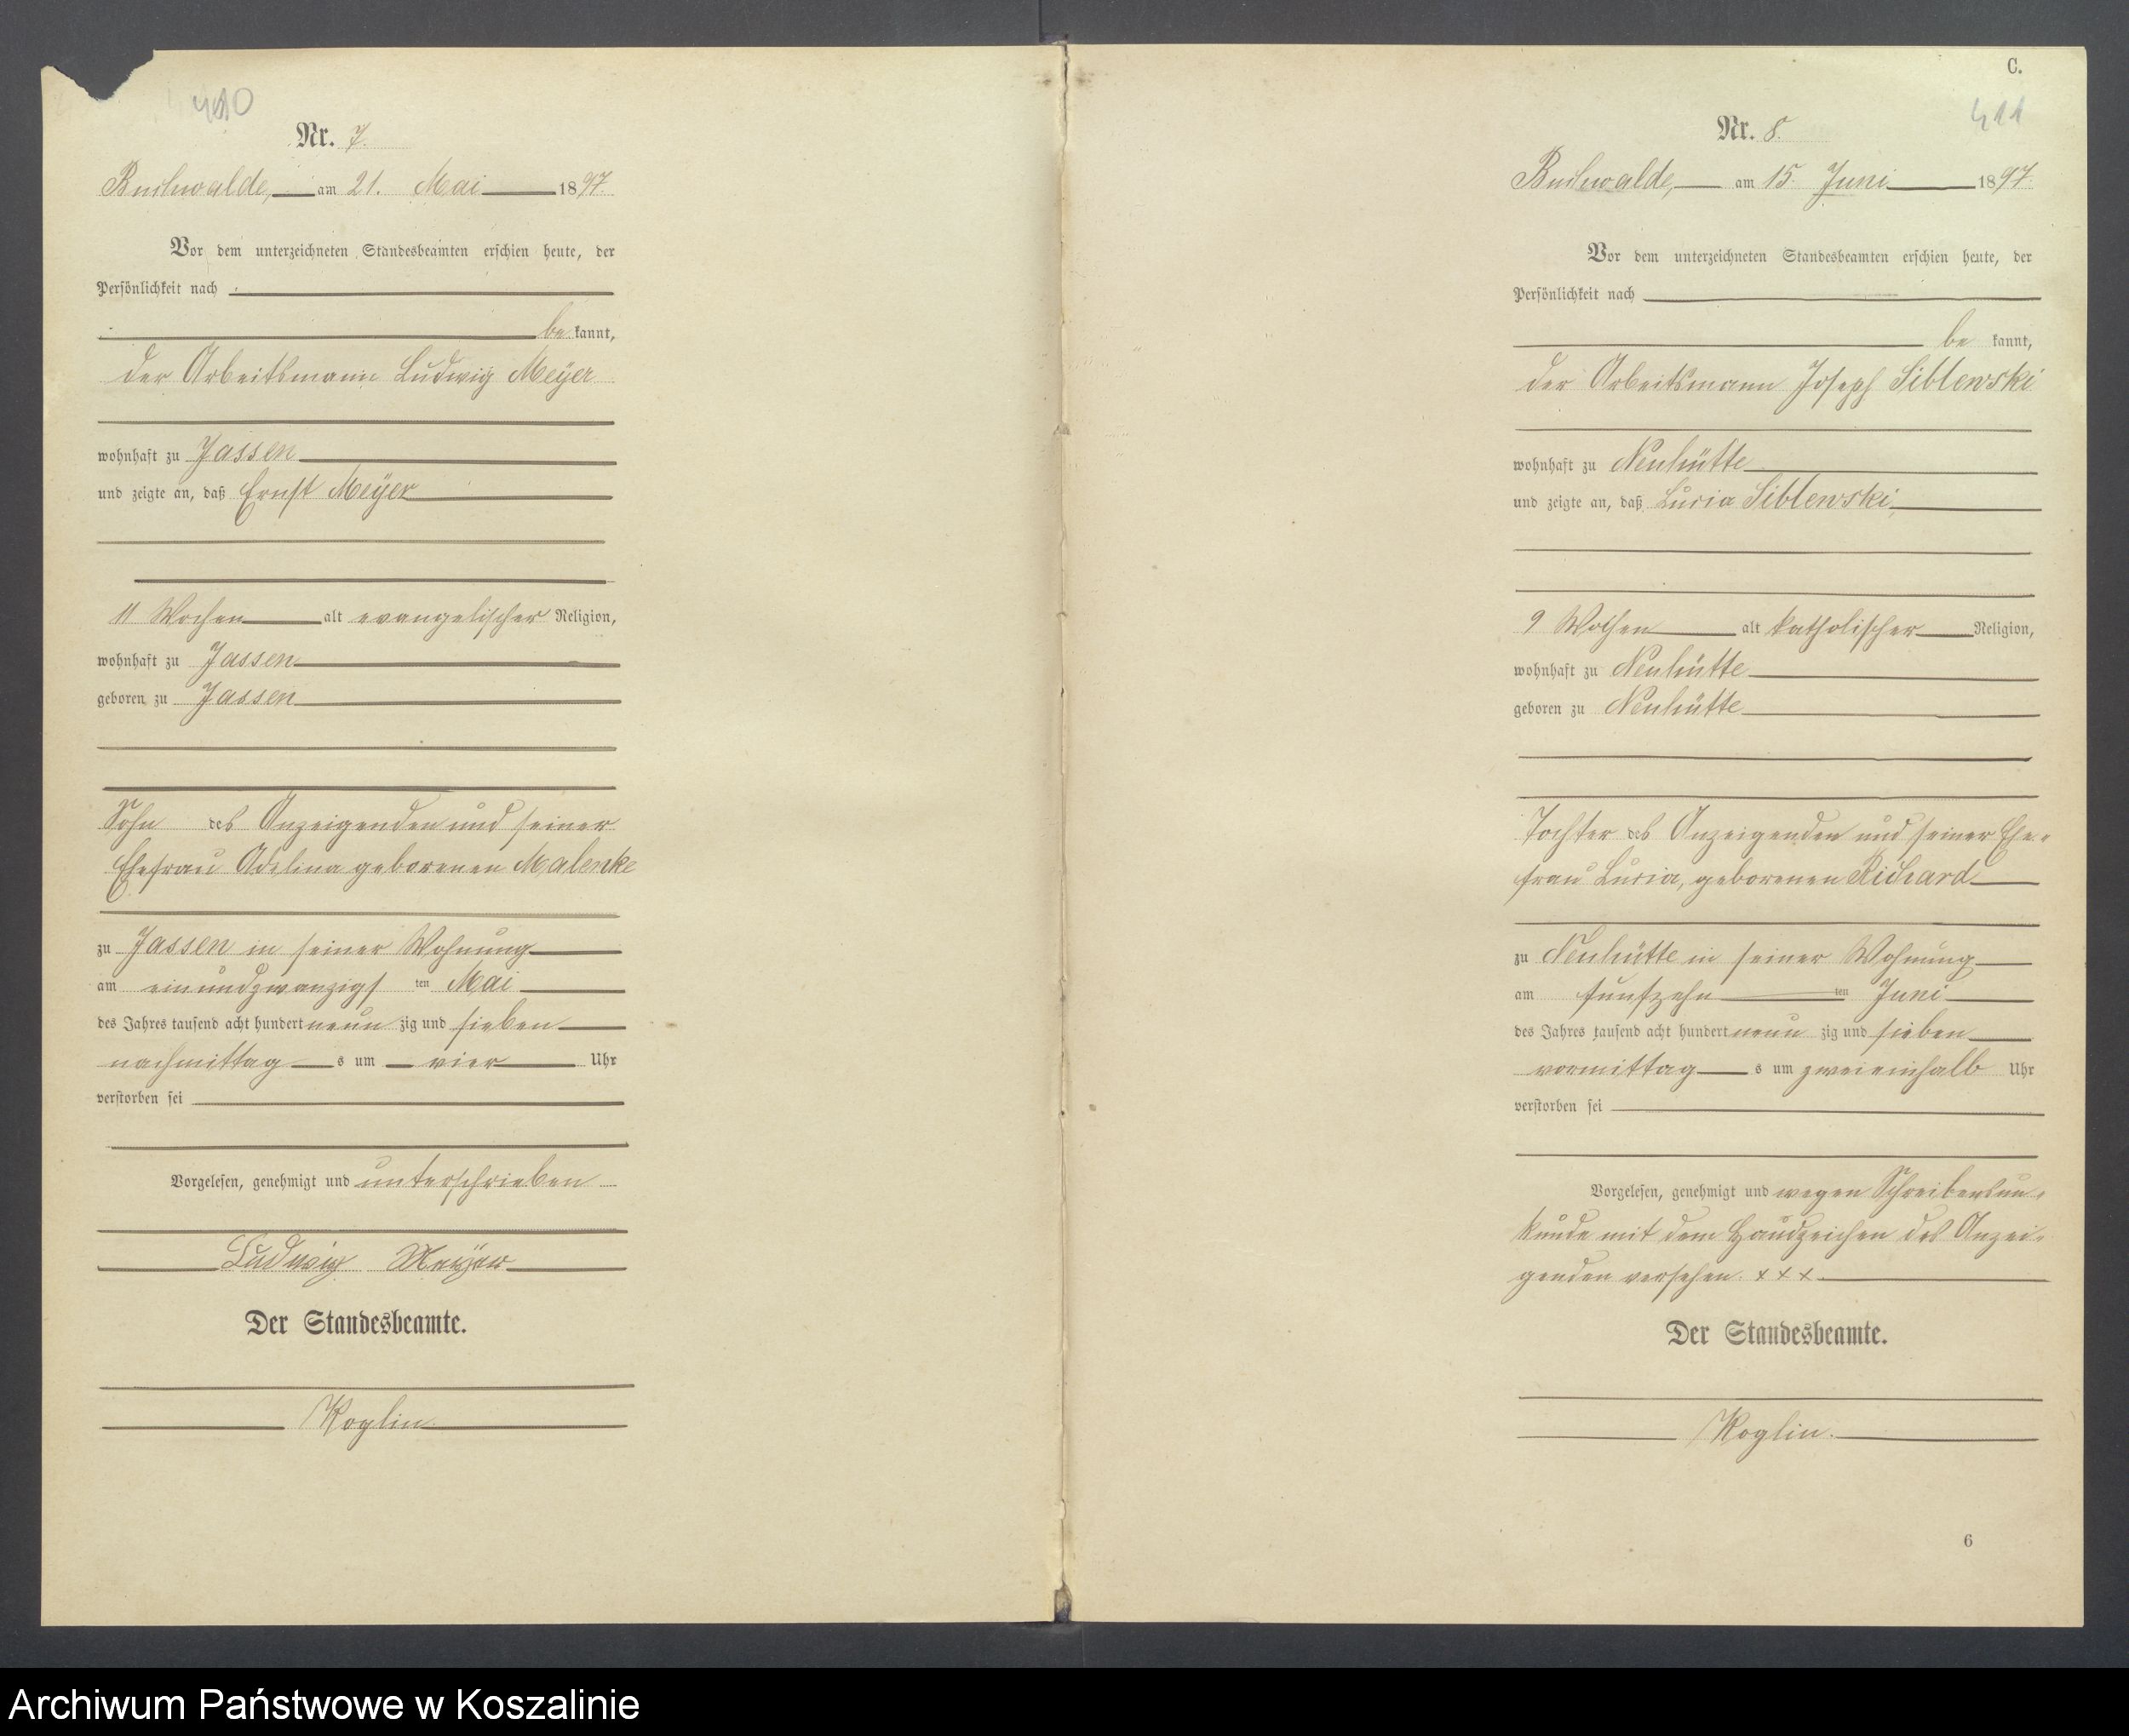 410
Nr. 7.
Buchwalde, am 21. Mai 1897.
Vor dem unterzeichneten Standesbeamten erschien heute, der
Persönlichkeit nach
be kannt,
der Arbeitsmann Ludwig Meÿer
wohnhaft zu Jassen
und zeigte an, daß Ernst Meÿer
11 Wochen alt evangelischer Religion,
wohnhaft zu Jassen
geboren zu Jassen
Sohn des Anzeigenden und seiner
Ehefrau Adelina geborenen Malenke
zu Jassen in seiner Wohnung
am einundzwanzigs ten Mai
des Jahres tausend acht hundert neun zig und sieben
nachmittag s um vier Uhr
verstorben sei
Vorgelesen, genehmigt und unterschrieben
Ludwig Meÿer
Der Standesbeamte.
Koglin.
C.
411
Nr. 8.
Buchwalde, am 15. Juni 1897.
Vor dem unterzeichneten Standesbeamten erschien heute, der
Persönlichkeit nach
be kannt,
der Arbeitsmann Joseph Siblewski
wohnhaft zu Neuhütte
und zeigte an, daß Lucia Siblewski,
9 Wochen alt katholischer Religion,
wohnhaft zu Neuhütte
geboren zu Neuhütte
Tochter des Anzeigenden und seiner Ehe-
frau Lucia, geborenen Richard
zu Neuhütte in seiner Wohnung
am fünfzehn ten Juni
des Jahres tausend acht hundert neun zig und sieben
vormittag s um zweieinhalb Uhr
verstorben sei
Vorgelesen, genehmigt und wegen Schreibensun-
kunde mit dem Handzeichen des Anzei-
genden versehen. + + +.
Der Standesbeamte.
Koglin.
6
Archiwum Państwowe w Koszalinie